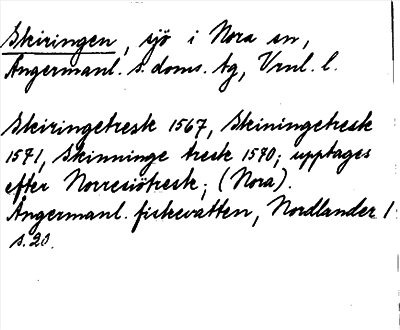 Skiringen, sjö i Nora sn,
Ångermanl. s. doms. tg, Vrnl. l.
Skiringetresk 1567, Skiningetresk
1571, Skinninge tresk 1590; upptages
efter Norresiötresk; (Nora).
Ångermanl. fiskevatten, Nordlander 1
s. 20.